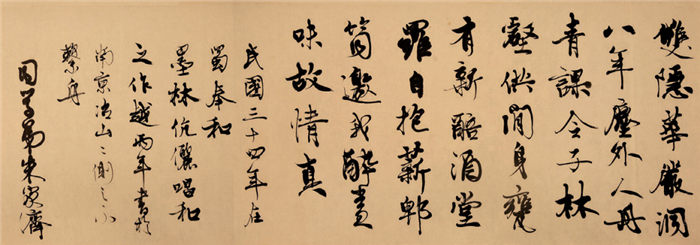 雙隱華嚴洞
八年塵外人丹
青課令子林
壑供閒身甕
有新醅酒堂
羅自抱薪郫
筒邀我醉
味故情真
民國三十四年在
蜀奉和
墨林伉儷唱和
之作越兩年書於
南京冶山之側之不
繫舟
同學弟朱家濟